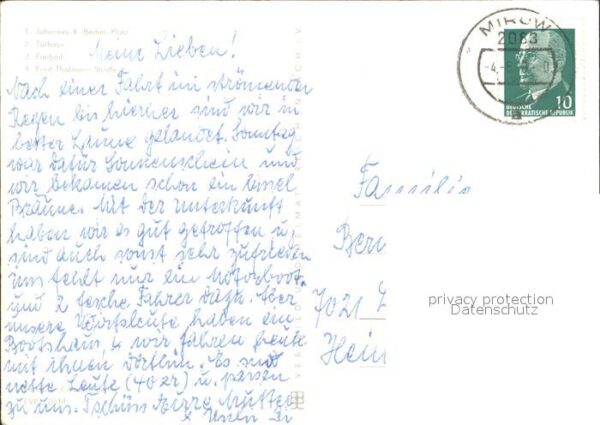 1 Johannes-R.-Becher-Platz
2
3 Freibad
4 Ernst-Thälmann-Straße
Meine Lieben!
Nach einer Fahrt im strömenden
Regen bis hierher sind wir in
bester Laune gelandet. Sonntag
war dafür Sonnenschein und
wir bekamen schon ein bissel
Bräune. Mit der Unterkunft
haben wir es gut getroffen u.
sind auch sonst sehr zufrieden
uns fehlt nur ein Motorboot
und 2 fesche Fahrer dazu. Aber
unsere Wirtsleute haben ein
Bootshaus, wir fahren heute
mit ihnen dorthin. Es sind
nette Leute (40er) u. passen
zu uns. Tschüss Eure Mutter
MIROW
2083
DEUTSCHE
DEMOKRATISCHE REPUBLIK
10
Familie
Bern
7021
Hein
privacy protection
Datenschutz